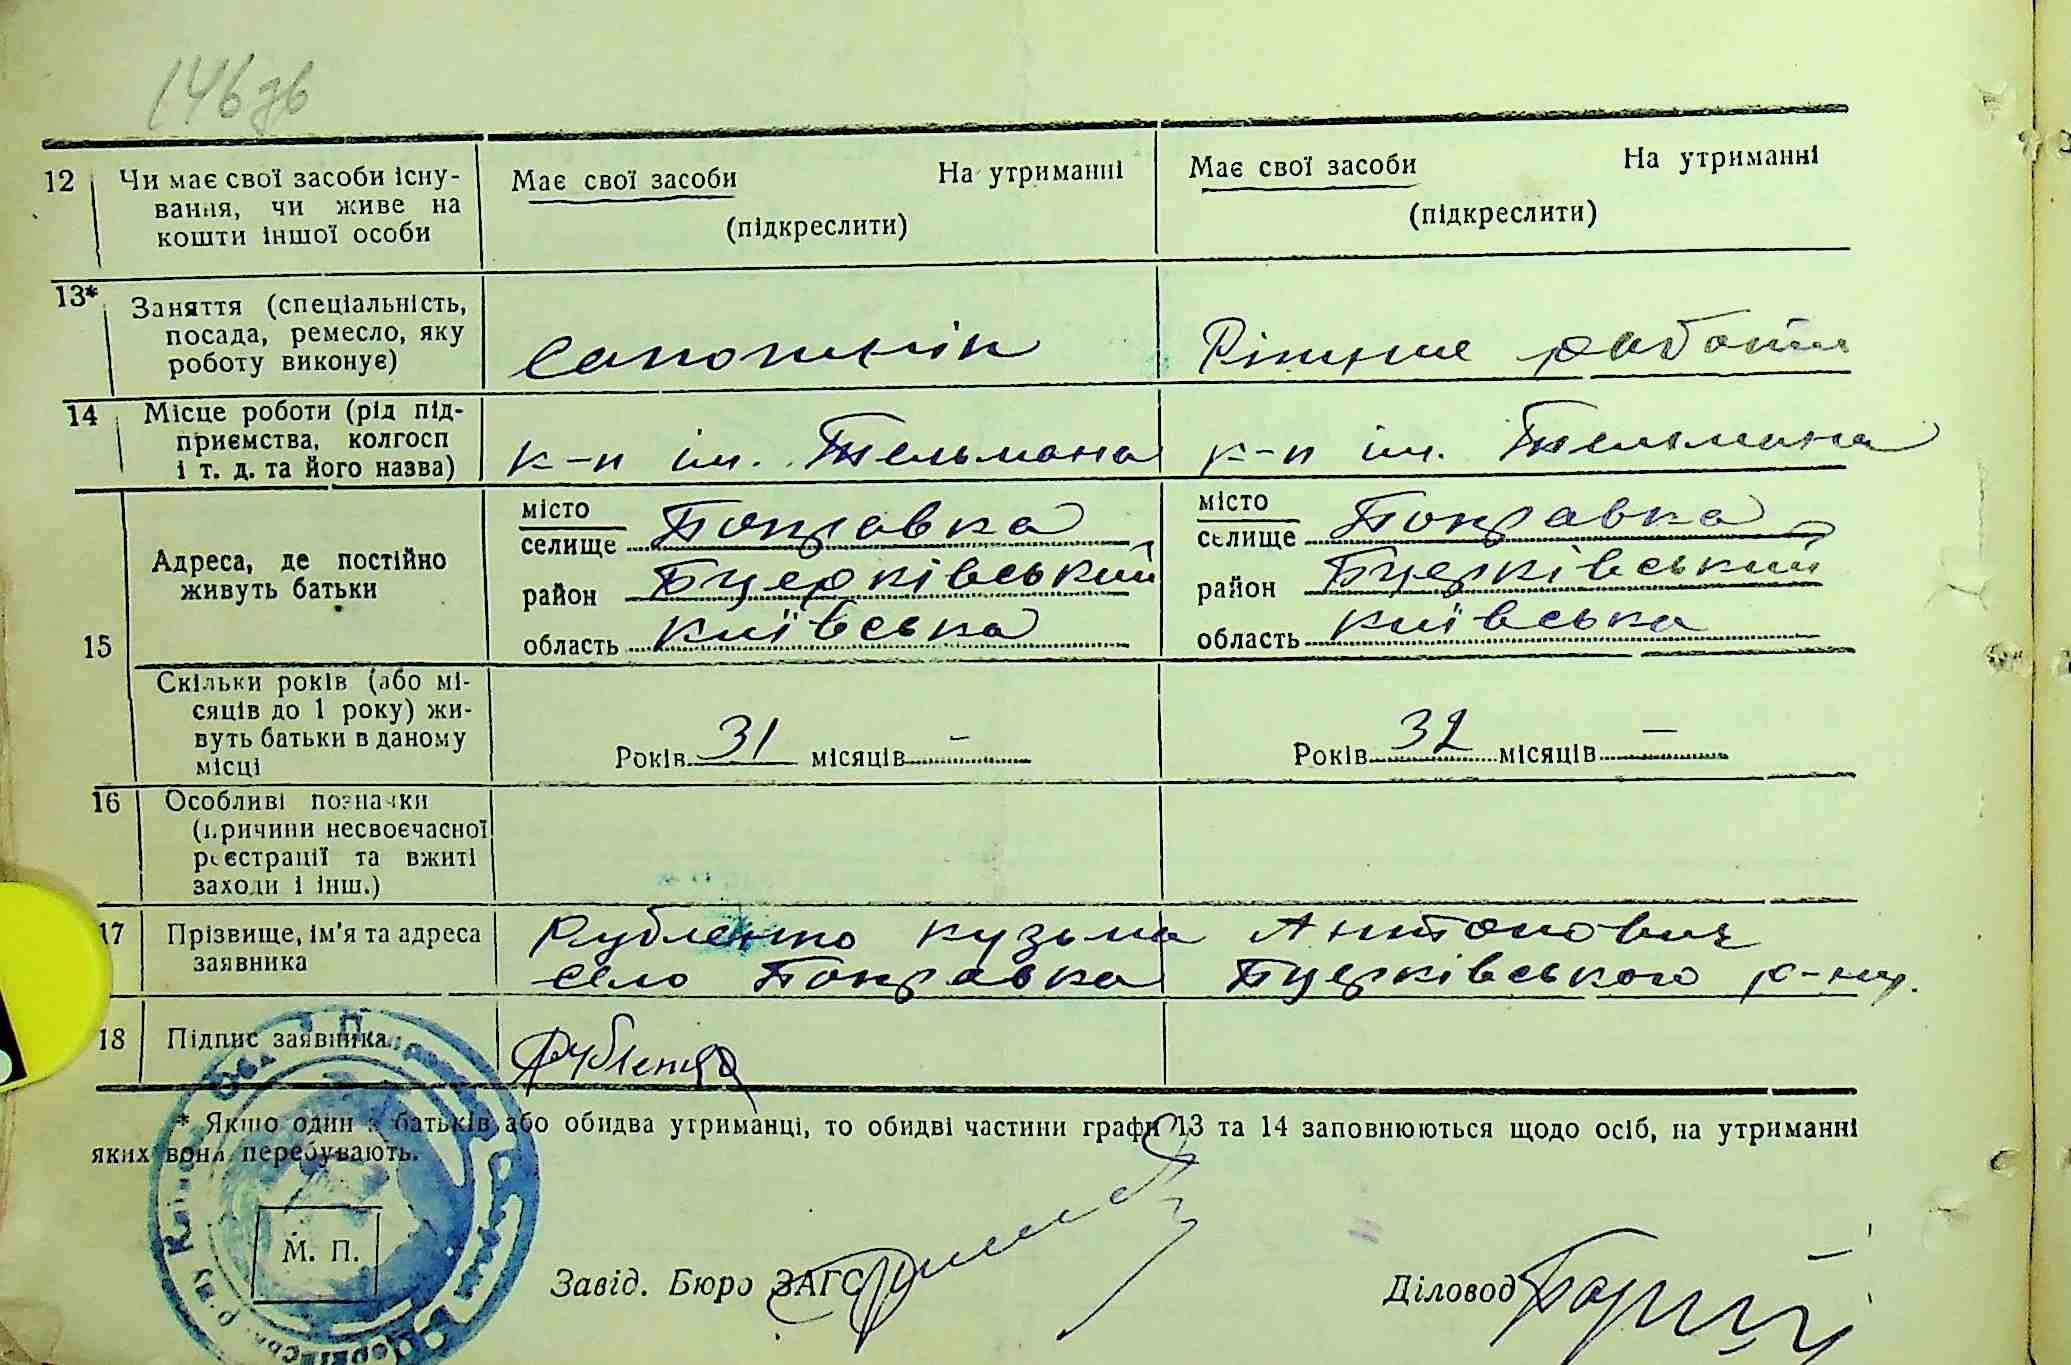 146 зв
12 Чи має свої засоби існу-
вання, чи живе на
кошти іншої особи
Має свої засоби На утриманні
(підкреслити)
Має свої засоби На утриманні
(підкреслити)
13* Заняття (спеціальність,
посада, ремесло, яку
роботу виконує)
Сапожнік
Ріжные работи
14 Місце роботи (рід під-
приємства, колгосп
і т. д. та його назва)
к-п ім. Тельмана
к-п ім. Тельмана
15 Адреса, де постійно
живуть батьки
місто
селище Поправка
район Бцерківський
область Київська
місто
селище Поправка
район Бцерківський
область Київська
Скільки років (або мі-
сяців до 1 року) жи-
вуть батьки в даному
місці
Років 31 місяців —
Років 32 місяців —
16 Особливі позначки
(причини несвоєчасної
реєстрації та вжиті
заходи і інш.)
17 Прізвище, ім'я та адреса
заявника
Рубленко Кузьма Антонович
село Поправка Бцерківського р-ну.
18 Підпис заявника
Рубленко
* Якщо один з батьків або обидва утриманці, то обидві частини графи 13 та 14 заповнюються щодо осіб, на утриманні
яких вони перебувають.
М. П.
Завід. Бюро ЗАГС
Діловод